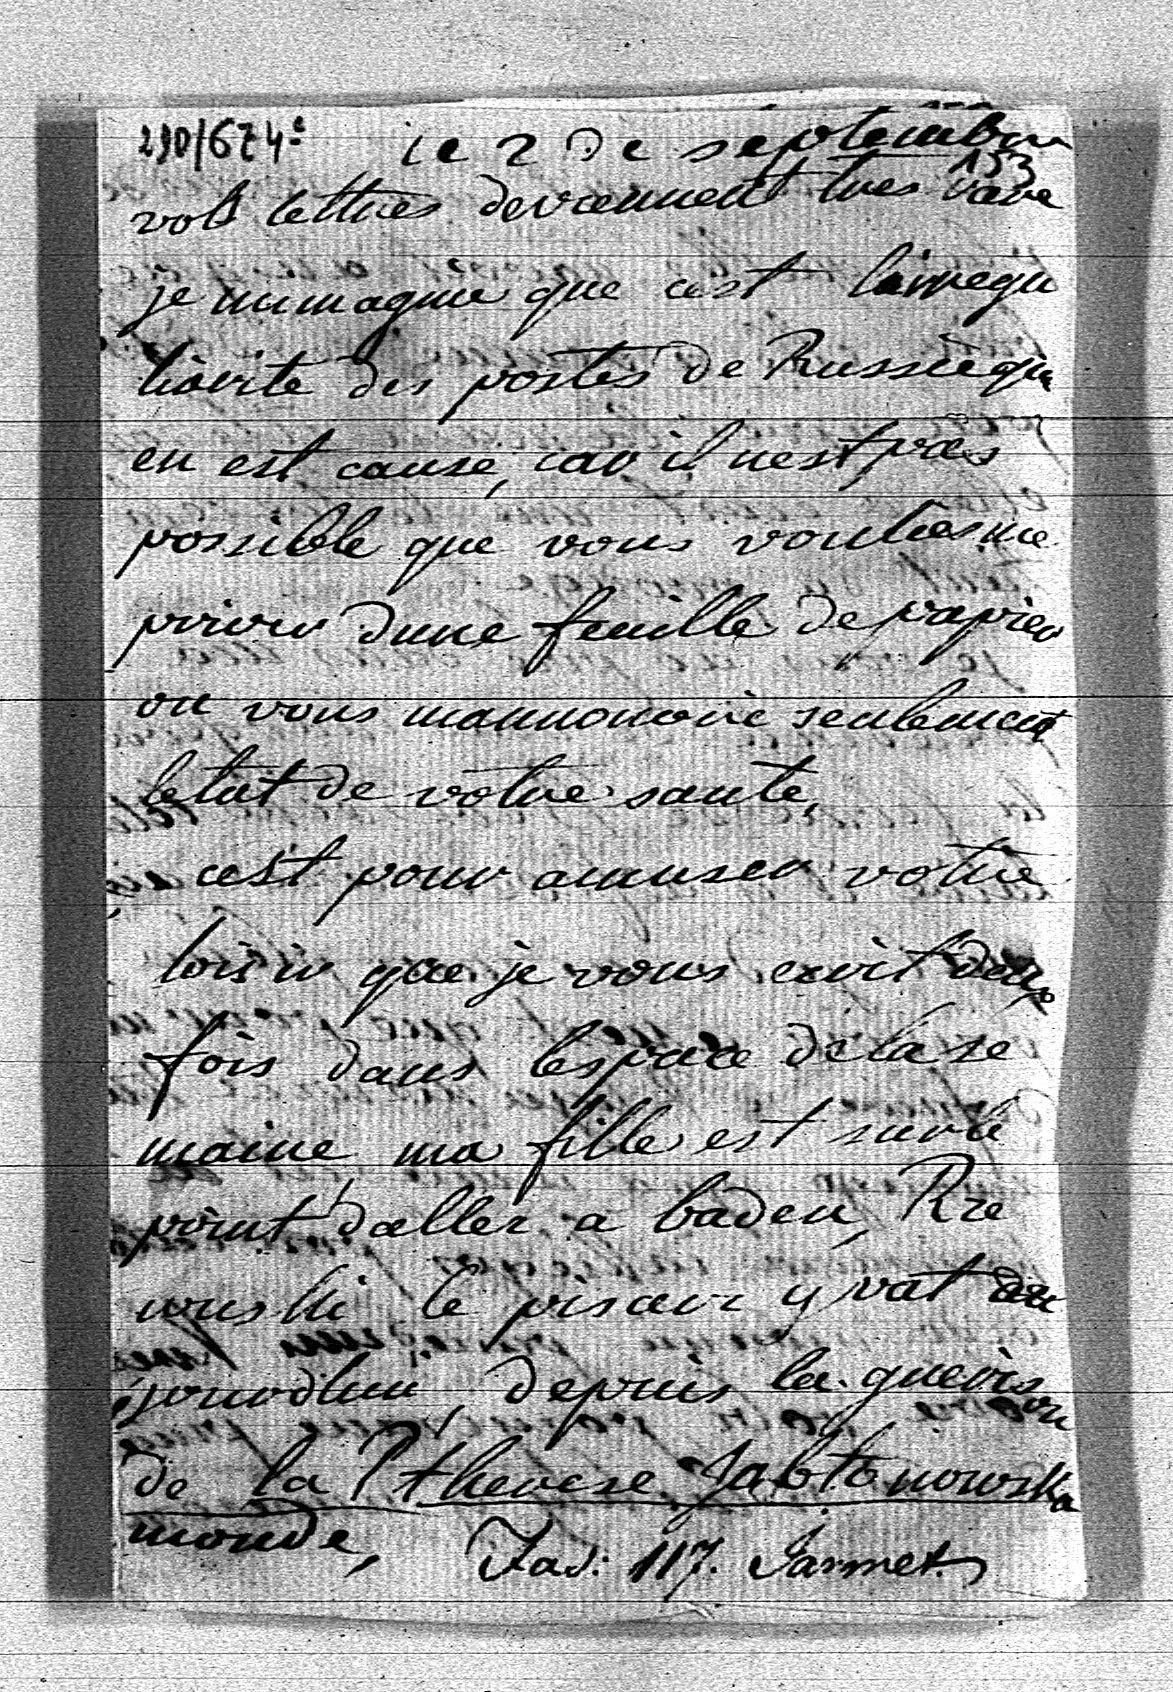 290/674ᵉ
ce 2 de septembre
153
vos lettres deviennent tres rare
je mimagine que cest lairregu
liarite des postes de Russie qui
en est cause, car il nest pas
possible que vous voulies me
priver dune feuille de papier
ou vous mannoncorie seulement
letat de votre sante,
cest pour amuser votre
loisir que je vous ecrit deux
fois dans lespace de la se
maine ma fille est sur le
point daller a baden, Rze
wuski le y vat au
jourdhui, depuis la guerison
de la P therese Jabtonowska
monde, 117.